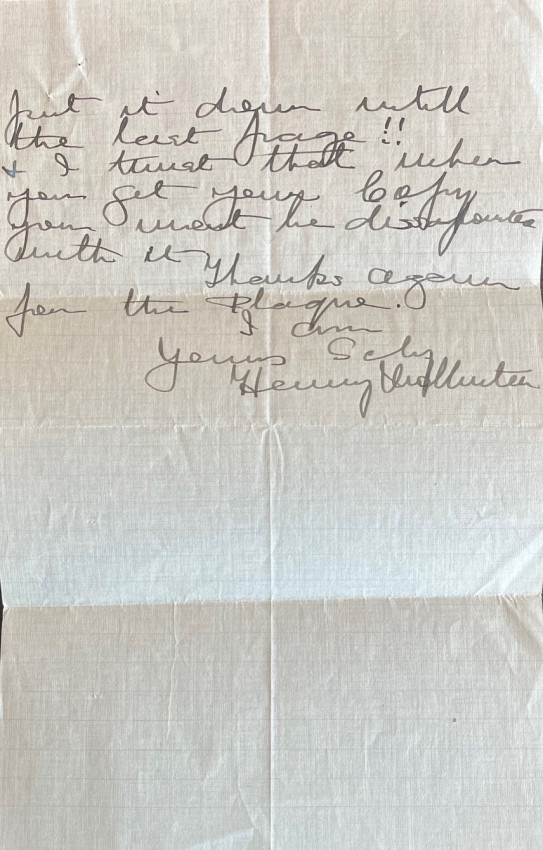 put it down untill
the last page!!
& I trust that when
you get your Copy
you wont be dissapointed
with it
Thanks again
for the Plaque.
I am
Yours Scly
Henry